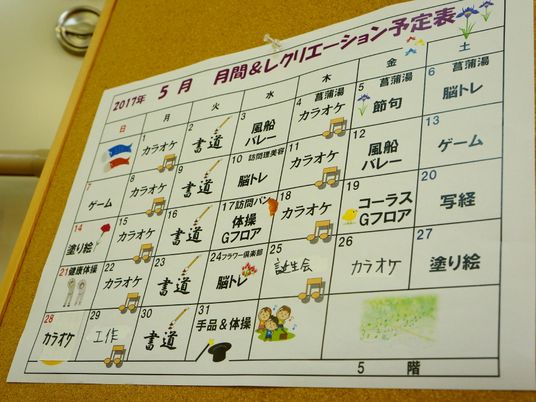 2017年 5月 月間&レクリエーション予定表
日 月 火 水 木 金 土
1 カラオケ
2 書道
3 風船バレー
4 菖蒲湯 カラオケ
5 菖蒲湯 節句
6 菖蒲湯 脳トレ
7 ゲーム
8 カラオケ
9 書道
10 訪問理美容 脳トレ
11 カラオケ
12 風船バレー
13 ゲーム
14 塗り絵
15 カラオケ
16 書道
17 訪問パン 体操 Gフロア
18 カラオケ
19 コーラス Gフロア
20 写経
21 健康体操
22 カラオケ
23 書道
24 フラワー倶楽部 脳トレ
25 誕生会
26 カラオケ
27 塗り絵
28 カラオケ
29 工作
30 書道
31 手品&体操
5 階